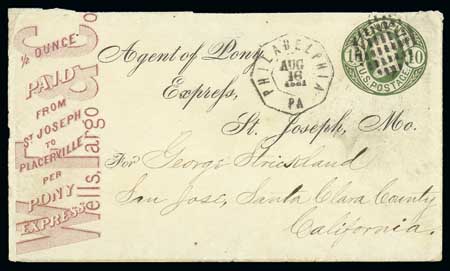 ½ OUNCE
PAID
FROM
ST JOSEPH
TO
PLACERVILLE
PER
PONY
EXPRESS
Wells, Fargo & Co
Agent of Pony
Express,
St. Joseph, Mo.
PHILADELPHIA
AUG
16
1861
PA
10 10
U.S. POSTAGE
For George Strickland
San Jose, Santa Clara County
California.